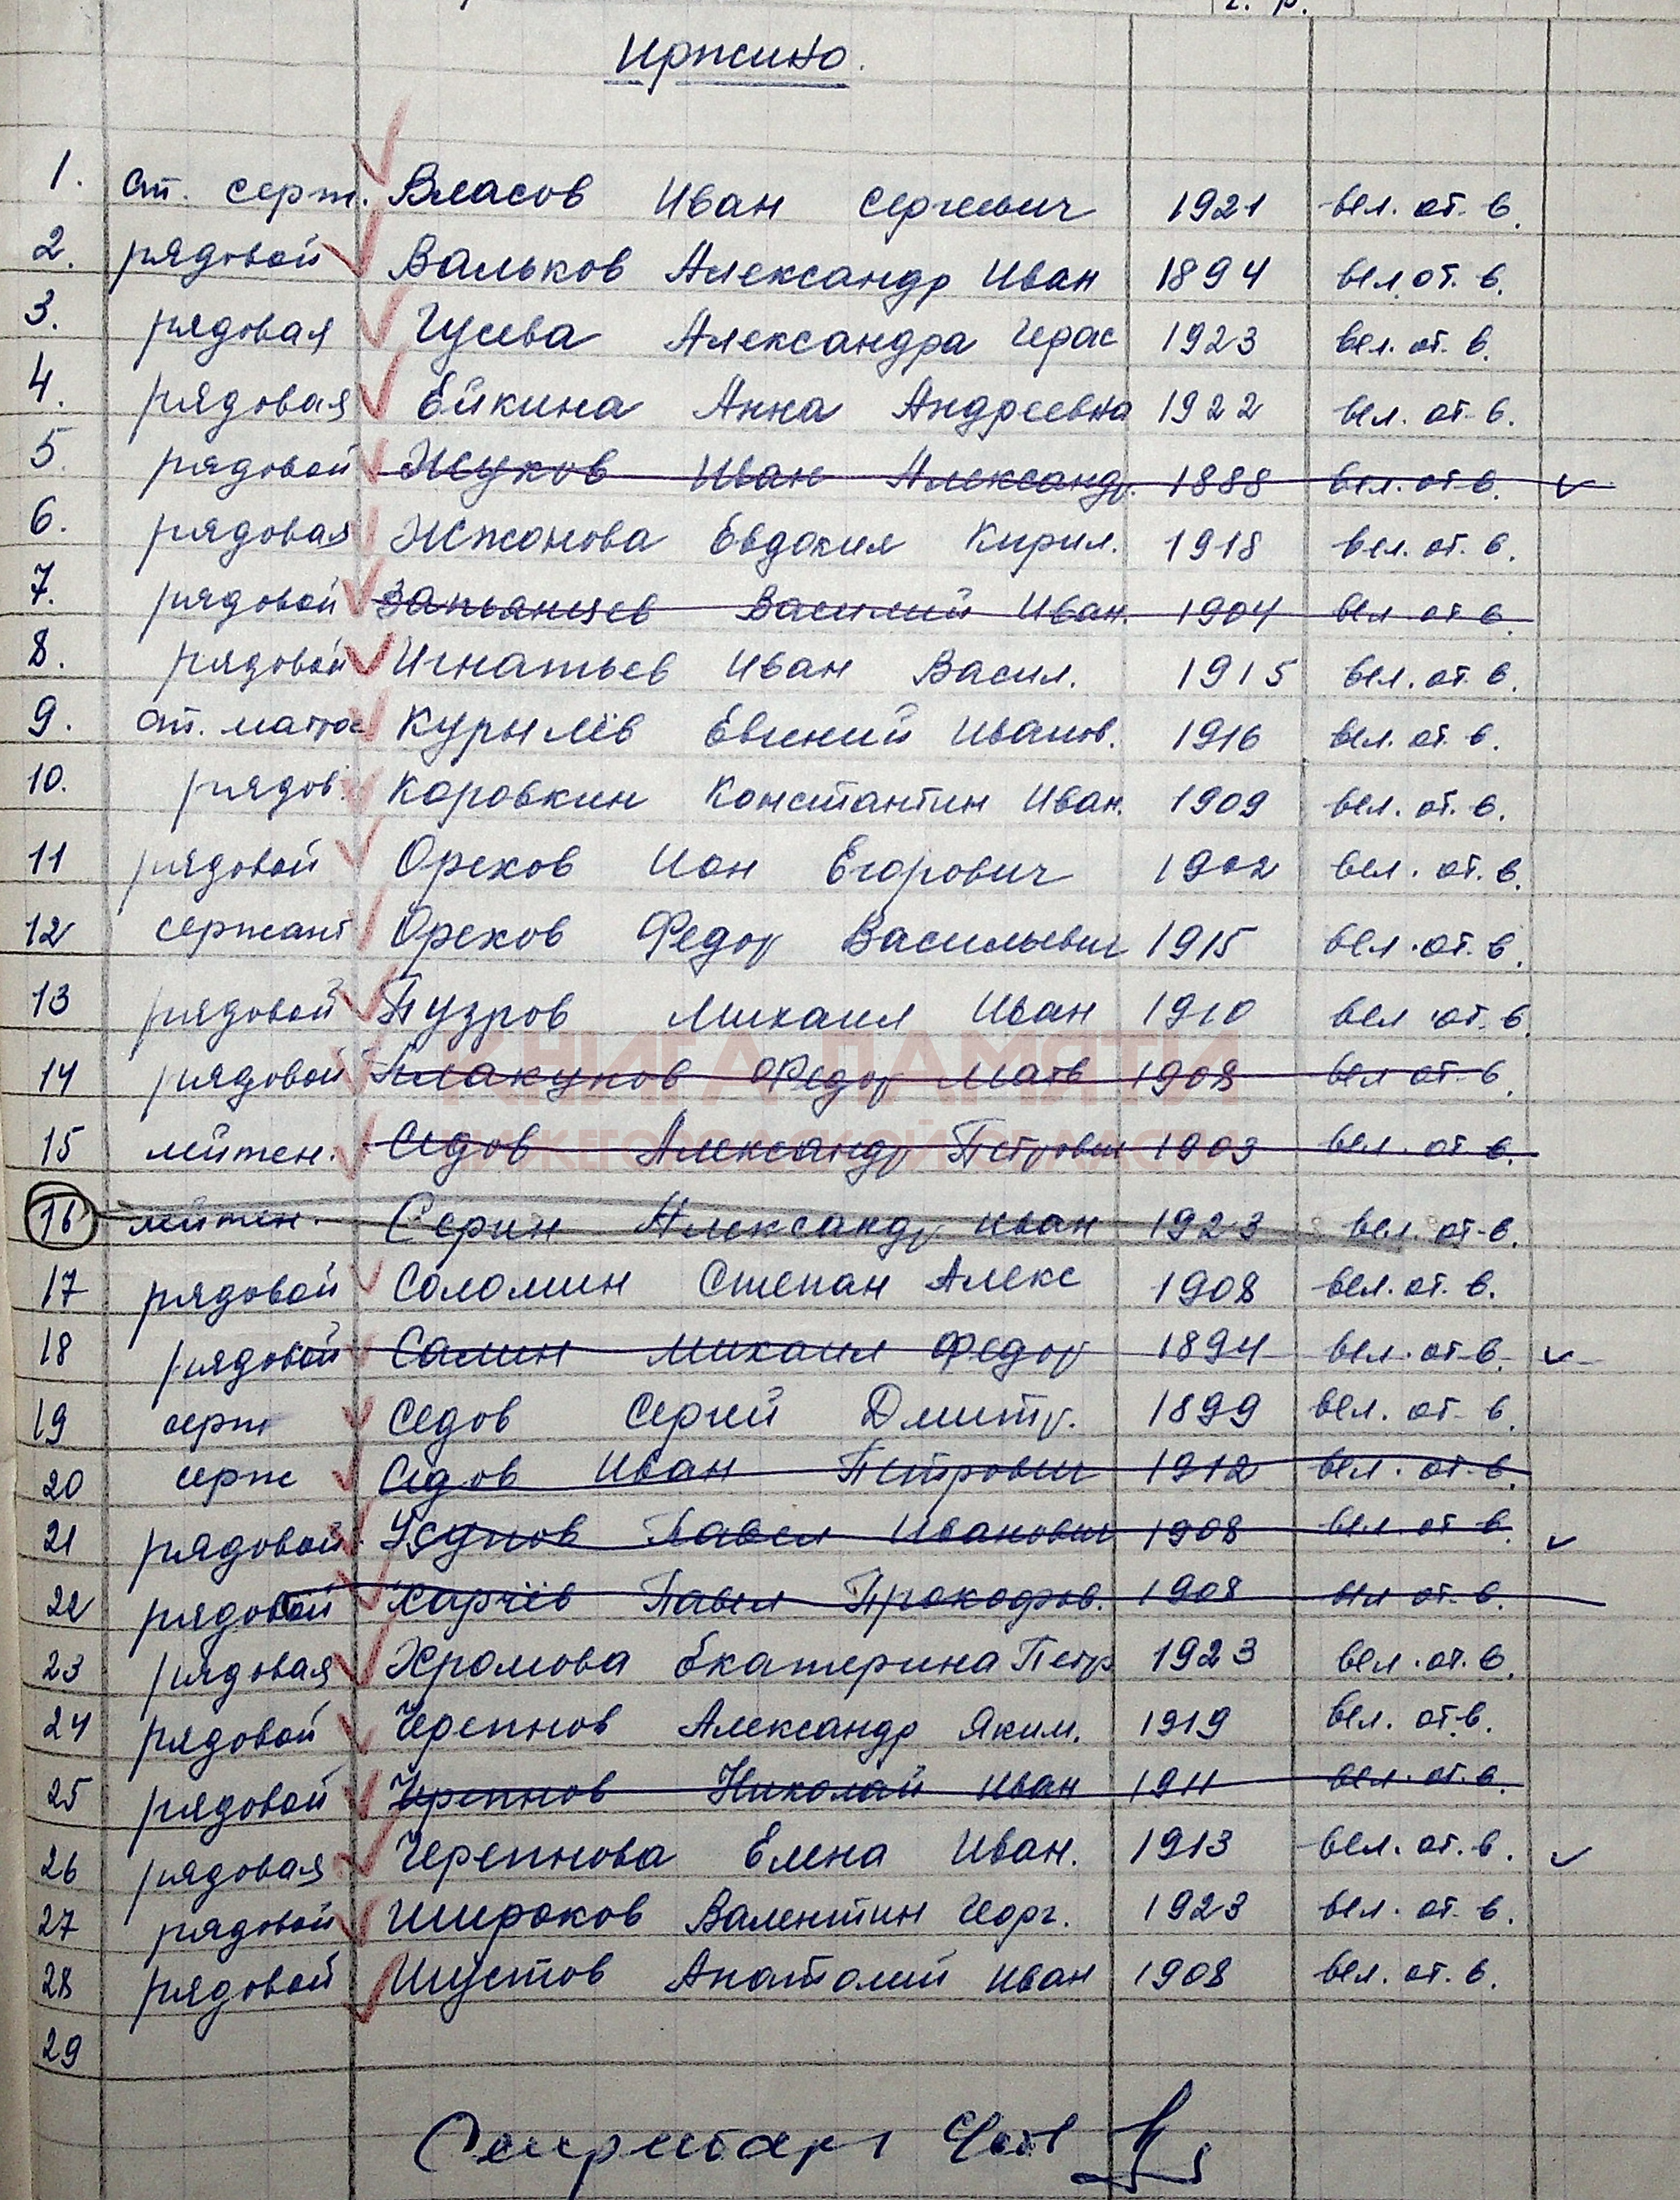 г. р.
Иржино.
1. ст. серж. Власов Иван Сергеевич 1921 вел. от. в.
2. рядовой Вальков Александр Иван 1894 вел. от. в.
3. рядовая Гусева Александра Герас 1923 вел. от. в.
4. рядовая Ейкина Анна Андреевна 1922 вел. от. в.
5. рядовой Жуков Иван Александр. 1888 вел. от. в.
6. рядовая Жжонова Евдокия Кирил. 1918 вел. от. в.
7. рядовой Запьянцев Василий Иван. 1904 вел. от. в.
8. рядовой Игнатьев Иван Васил. 1915 вел. от. в.
9. ст. матрос Курылёв Евгений Иванов. 1916 вел. от. в.
10. рядов. Коровкин Константин Иван. 1909 вел. от. в.
11 рядовой Орехов Иан Егорович 1902 вел. от. в.
12 сержант Орехов Федор Васильевич 1915 вел. от. в.
13 рядовой Пузров Михаил Иван 1910 вел. от. в.
КНИГА ПАМЯТИ
14 рядовой Плакунов Федор Матв 1908 вел от. в.
НИЖЕГОРОДСКОЙ ОБЛАСТИ
15 лейтен. Седов Александр Петрович 1903 вел. от. в.
16 лейтен. Серин Александр Иван 1923 вел. от. в.
17 рядовой Соломин Степан Алекс 1908 вел. от. в.
18 рядовой Салин Михаил Федор 1894 вел. от. в.
19 серж Седов Сергей Дмитр. 1899 вел. от. в.
20 серж Седов Иван Петрович 1912 вел. от. в.
21 рядовой Усунов Павел Иванович 1908 вел. от. в.
22 рядовой Харчёв Павел Прокофов. 1908 вел от. в.
23 рядовая Хромова Екатерина Петр 1923 вел. от. в.
24 рядовой Черепнов Александр Яким. 1919 вел. от. в.
25 рядовой Черепнов Николай Иван 1911 вел. от. в.
26 рядовая Черепнова Елена Иван. 1913 вел. от. в.
27 рядовой Широков Валентин Георг. 1923 вел. от. в.
28 рядовой Шустов Анатолий Иван 1908 вел. от. в.
29
Секретарь